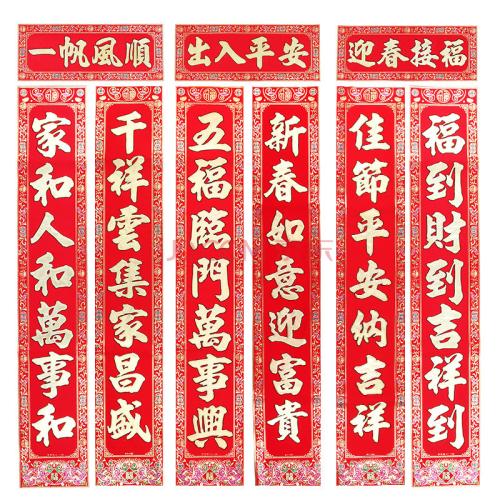 一帆風順
出入平安
迎春接福
家和人和萬事和
千祥雲集家昌盛
五福臨門萬事興
新春如意迎富貴
佳節平安納吉祥
福到財到吉祥到